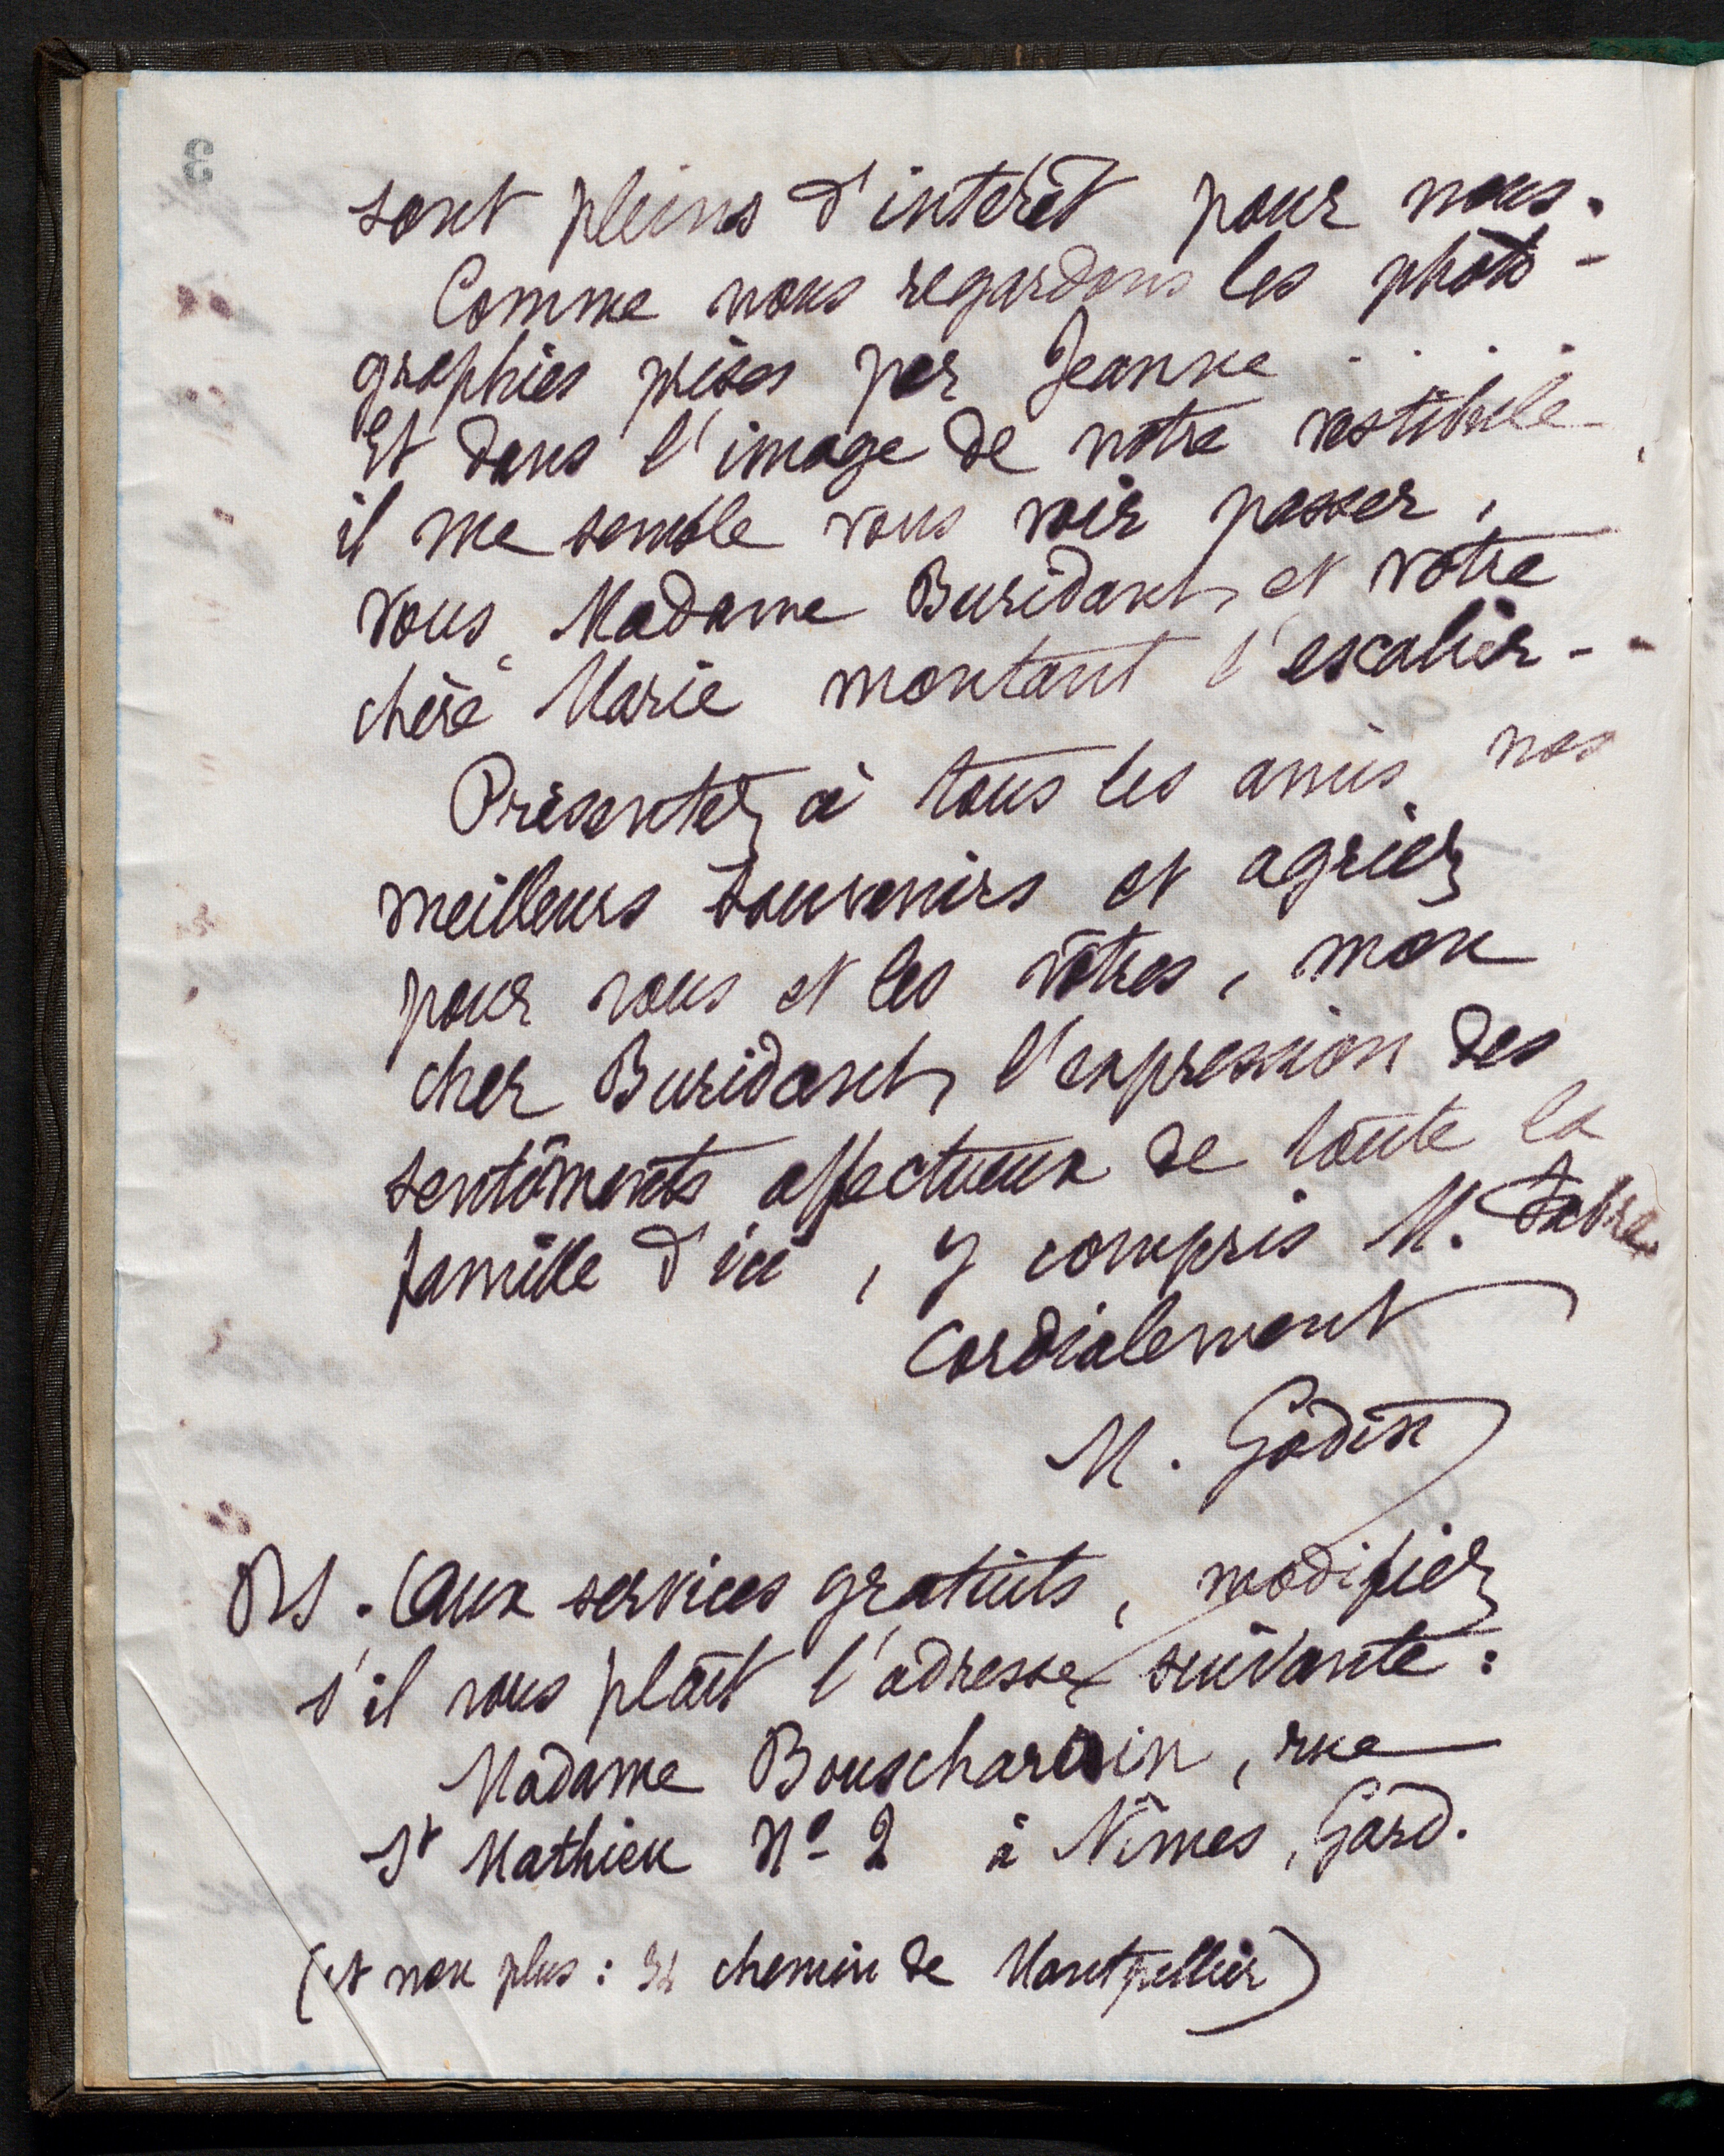 3
sont pleins d'intérêt pour nous.
Comme nous regardons les photo-
graphies prises par Jeanne . . . .
Et dans l'image de notre vestibule
il me semble vous voir passer,
vous, Madame Buridant, et votre
chère Marie montant l'escalier -
Présentez à tous les amis nos
meilleurs souvenirs et agréez
pour vous et les vôtres, mon
cher Buridant, l'expression des
sentiments affectueux de toute la
famille d'ici, y compris M. Fabre.
Cordialement
M. Godin
PS. Aux services gratuits, modifiez
s'il vous plaît l'adresse suivante :
Madame Bouschardin, rue
St Mathieu No 2 à Nîmes, Gard.
(et non plus : chemin de Montpellier)